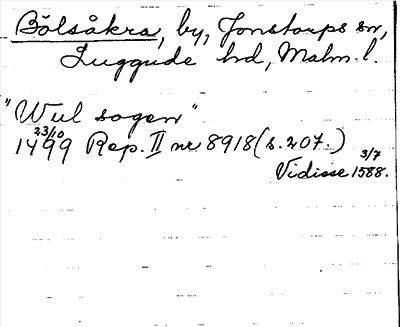 Bölsåkra, by, Jonstorps sn,
Luggude hd, Malm. l.
"Wul sogen"
23/10
1499 Rep. II nr 8918 (s. 207.)
3/7
Vidisse 1588.